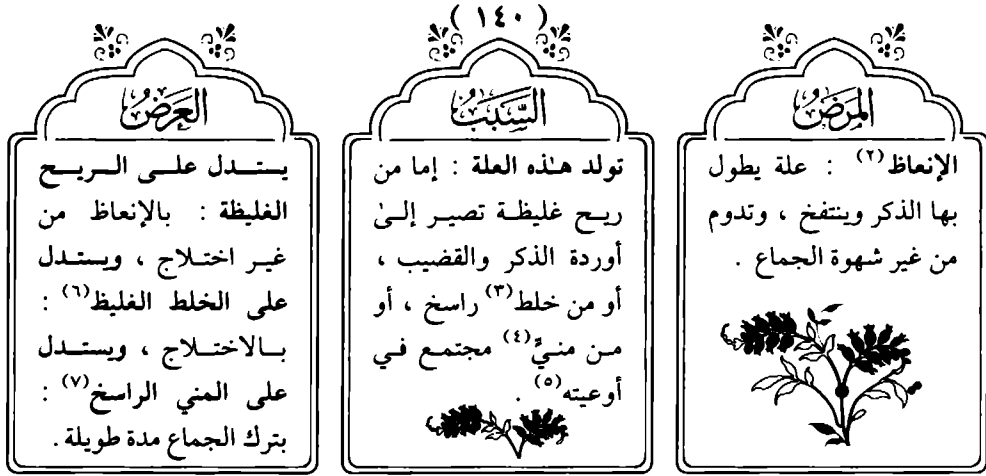 ( ١٤٠ )
المرض
الإنعاظ(٢) : علة يطول
بها الذكر وينتفخ ، وتدوم
من غير شهوة الجماع .
السبب
تولد هـٰذه العلة : إما من
ريح غليظة تصير إلىٰ
أوردة الذكر والقضيب ،
أو من خلط(٣) راسخ ، أو
من منيٍّ(٤) مجتمع في
أوعيته(٥) .
العرض
يستدل على الريح
الغليظة : بالإنعاظ من
غير اختلاج ، ويستدل
على الخلط الغليظ(٦) :
بالاختلاج ، ويستدل
على المني الراسخ(٧) :
بترك الجماع مدة طويلة .